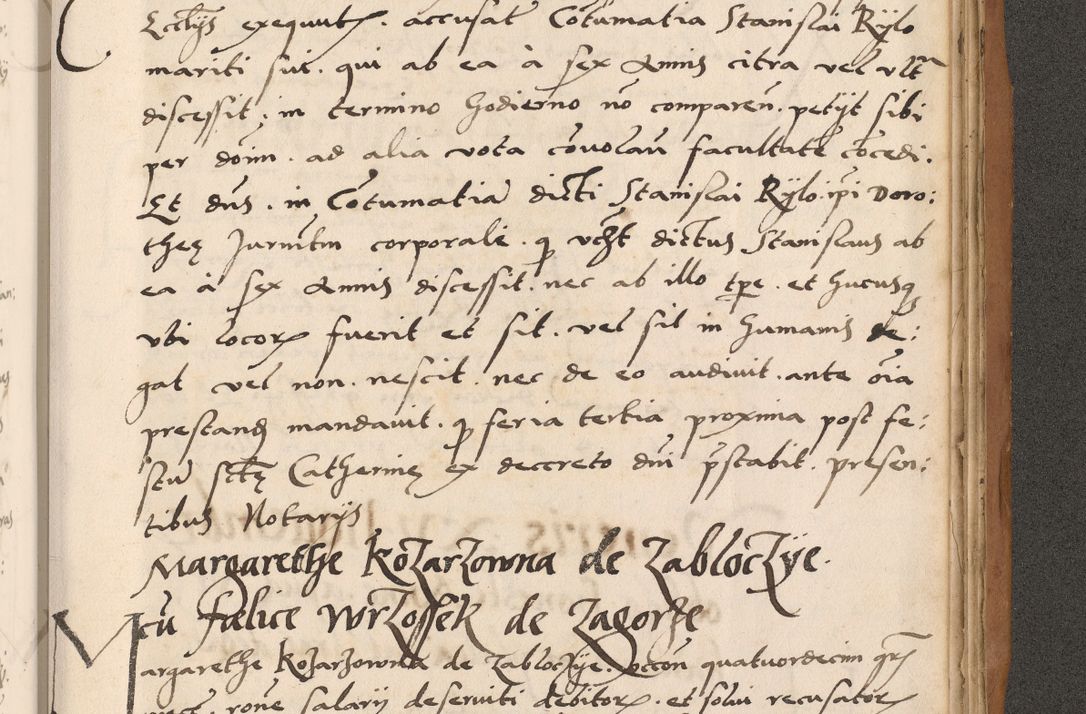 Ecclijs exequutꝝ. accusat Cōtumatia Stanislai Rÿlo
mariti sui. qui ab ea à sex Annis citra vel vltᵃ
discessit. in termino hodierno nō comparen̄. petijt sibi
per dōim. ad alia vota cōuolan̄ facultatē cōcedi.
Et dn̄s. in Cōtumatiā dicti Stanislai Rÿlo. ip̄i Doro:
theę Jurm̄tm corporale. ꝙ vc̄ht dictus Stanislaus ab
ea à sex Annis discessit. nec ab illo tp̄e. et hucusq
vbi locorꝝ fuerit et sit. vel sit in humanis de:
gat vel non. nescit. nec de eo audiuit. ante oīa
prestand̄ mandauit. ꝙ feria tertia proxima post fe:
stū sctę Catherinę ex deccreto dn̄i p̄stabit. presen:
tibus Notarijs
Margarethe KoZarZowna de ZabłocZÿe.
cū Fælice WrZossek de ZagorZe
Margarethe KoZarZowna de ZabłocZÿe. occōn quatuordecim gr̄s
rōne salarij deseruiti debitorꝝ. et solui recusatorꝝ